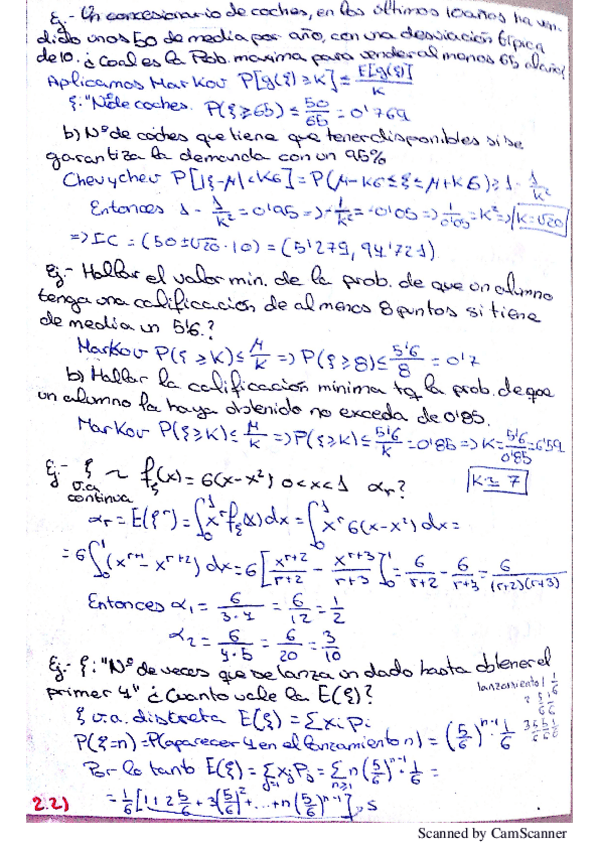 Ej.- Un concesionario de coches, en los últimos 10 años ha ven-
dido unos 50 de media por año, con una desviación típica
de 10. ¿Cual es la Prob. maxima, para vender al menos 65 al año?
Aplicamos Markov P[g(ξ) ≥ K] ≤ E[g(ξ)]/K
ξ: "Nº de coches. P(ξ ≥ 65) ≤ 50/65 = 0'769
b) Nº de coches que tiene que tener disponibles si se
garantiza la demanda con un 95%
Chevychev P[|ξ-μ| < Kσ] = P(μ-Kσ ≤ ξ ≤ μ+Kσ) ≥ 1 - 1/K²
Entonces 1 - 1/K² = 0'95 => -1/K² = -0'05 => 1/0'05 = K² => K=√20
=> IC = (50 ± √20 · 10) = (5'279, 94'721)
Ej.- Hallar el valor min. de la prob. de que un alumno
tenga una calificación de al menos 8 puntos si tiene
de media un 5'6.?
Markov P(ξ ≥ K) ≤ μ/K => P(ξ ≥ 8) ≤ 5'6/8 = 0'7
b) Hallar la calificación mínima tq la prob. de que
un alumno la haya obtenido no exceda de 0'85.
Markov P(ξ ≥ K) ≤ μ/K => P(ξ ≥ K) ≤ 5'6/K = 0'85 => K = 5'6/0'85 = 6'59
Ej.- ξ ~ f_ξ(x) = 6(x-x²) 0<x<1 αr? K ≃ 7
v.a. continua
αr = E(ξ^r) = ∫₀¹ x^r f_ξ(x) dx = ∫₀¹ x^r 6(x-x²) dx =
= 6∫₀¹ (x^(r+1) - x^(r+2)) dx = 6[x^(r+2)/(r+2) - x^(r+3)/(r+3)]₀¹ = 6/(r+2) - 6/(r+3) = 6/((r+2)(r+3))
Entonces α₁ = 6/(3·4) = 6/12 = 1/2
α₂ = 6/(4·5) = 6/20 = 3/10
Ej.- ξ: "Nº de veces que se lanza un dado hasta obtener el
primer 4" ¿Cuanto vale la E(ξ)?
lanzamiento 1 1/6
2 5/6 1/6
3 5/6 5/6 1/6
ξ v.a. discreta E(ξ) = Σ xi Pi
P(ξ=n) = P(aparecer 4 en el lanzamiento n) = (5/6)^(n-1) · 1/6
Por lo tanto E(ξ) = Σ xj Pj = Σ n (5/6)^(n-1) · 1/6 =
2.2)